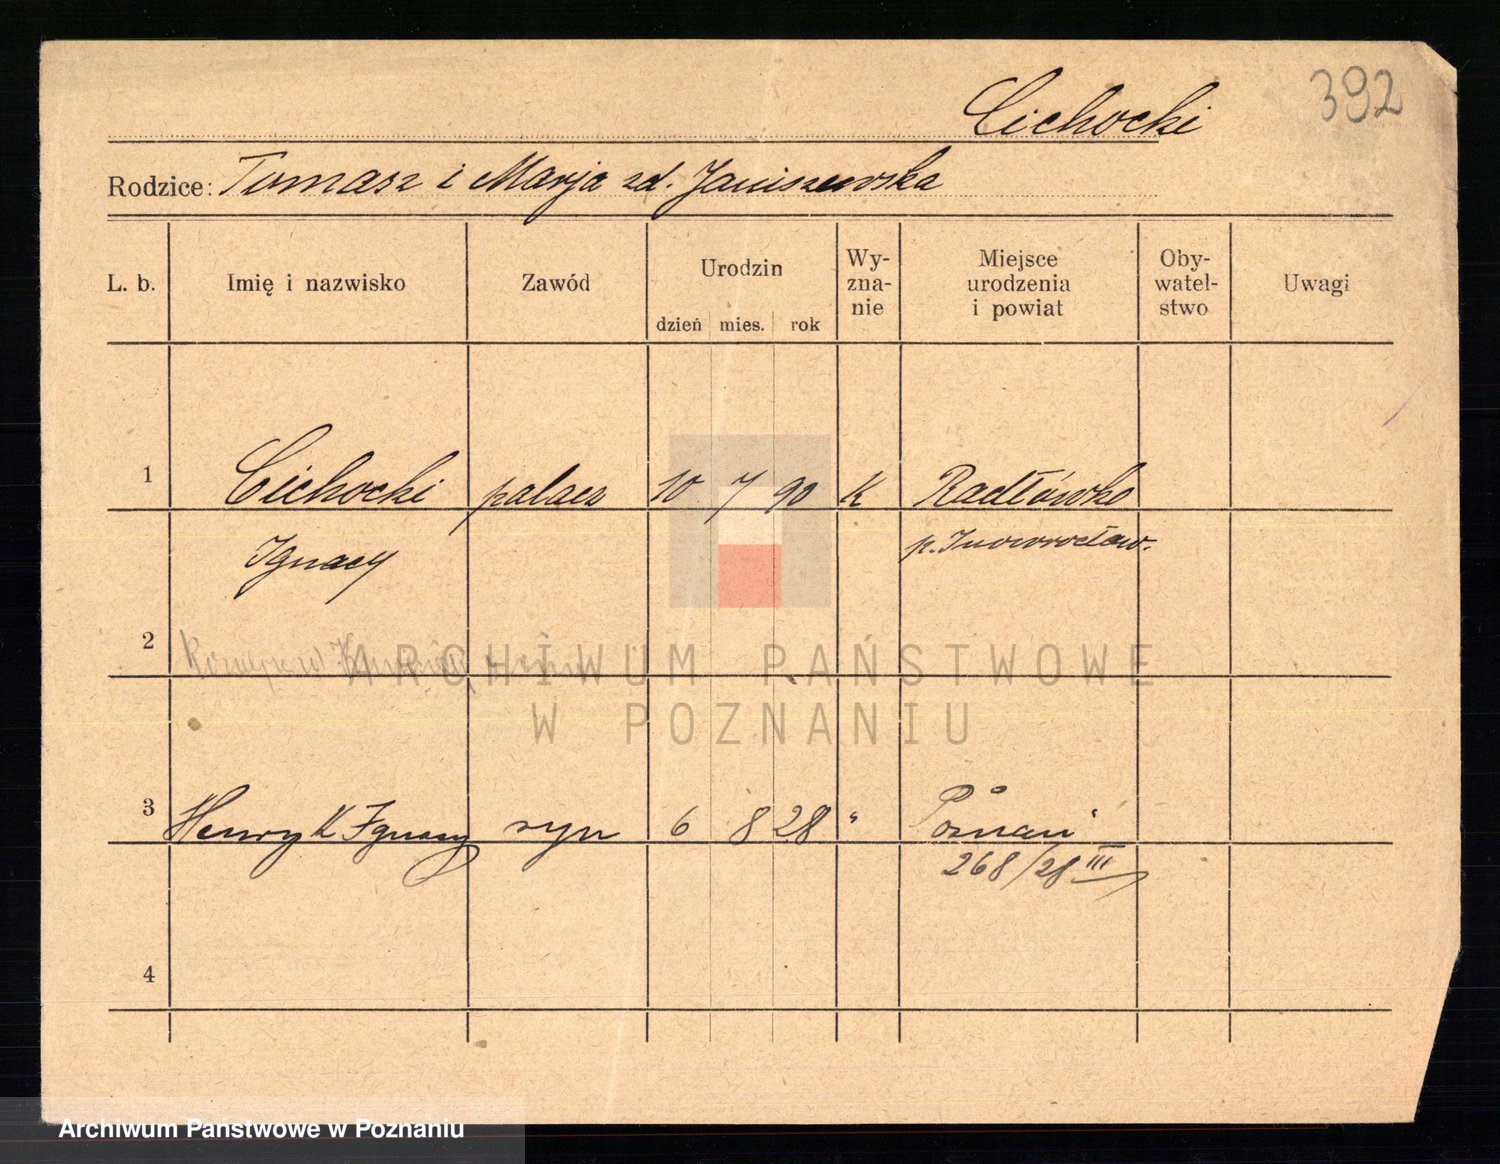 Cichocki 392
Rodzice: Tomasz i Marja zd. Janiszewska
L. b. Imię i nazwisko Zawód Urodzin dzień mies. rok Wy-zna-nie Miejsce urodzenia i powiat Oby-watel-stwo Uwagi
1 Cichocki palacz 10 7 90 K Radłówko
Ignacy p. Inowrocław.
2
3 Henryk Ignacy syn 6 8 28 " Poznań
268/28 III
4
ARCHIWUM PAŃSTWOWE
W POZNANIU
Archiwum Państwowe w Poznaniu